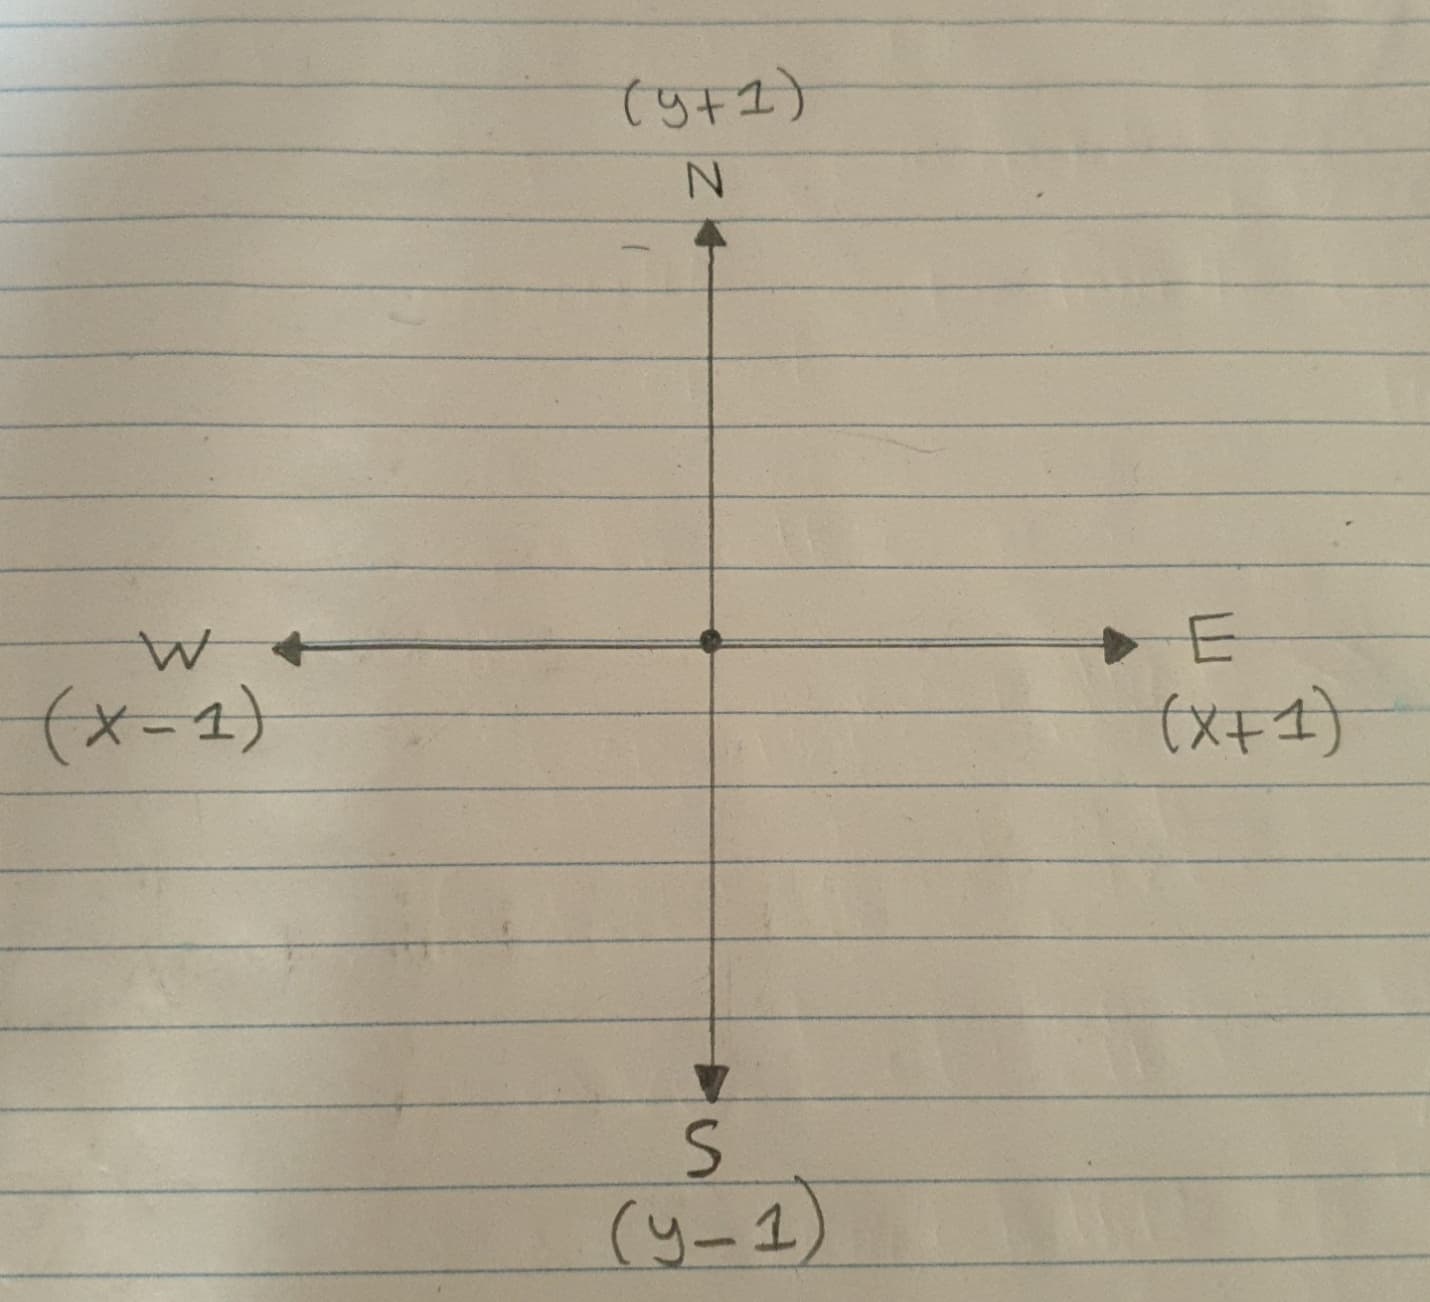 (y+1)
N
W
E
(x-1)
(x+1)
S
(y-1)